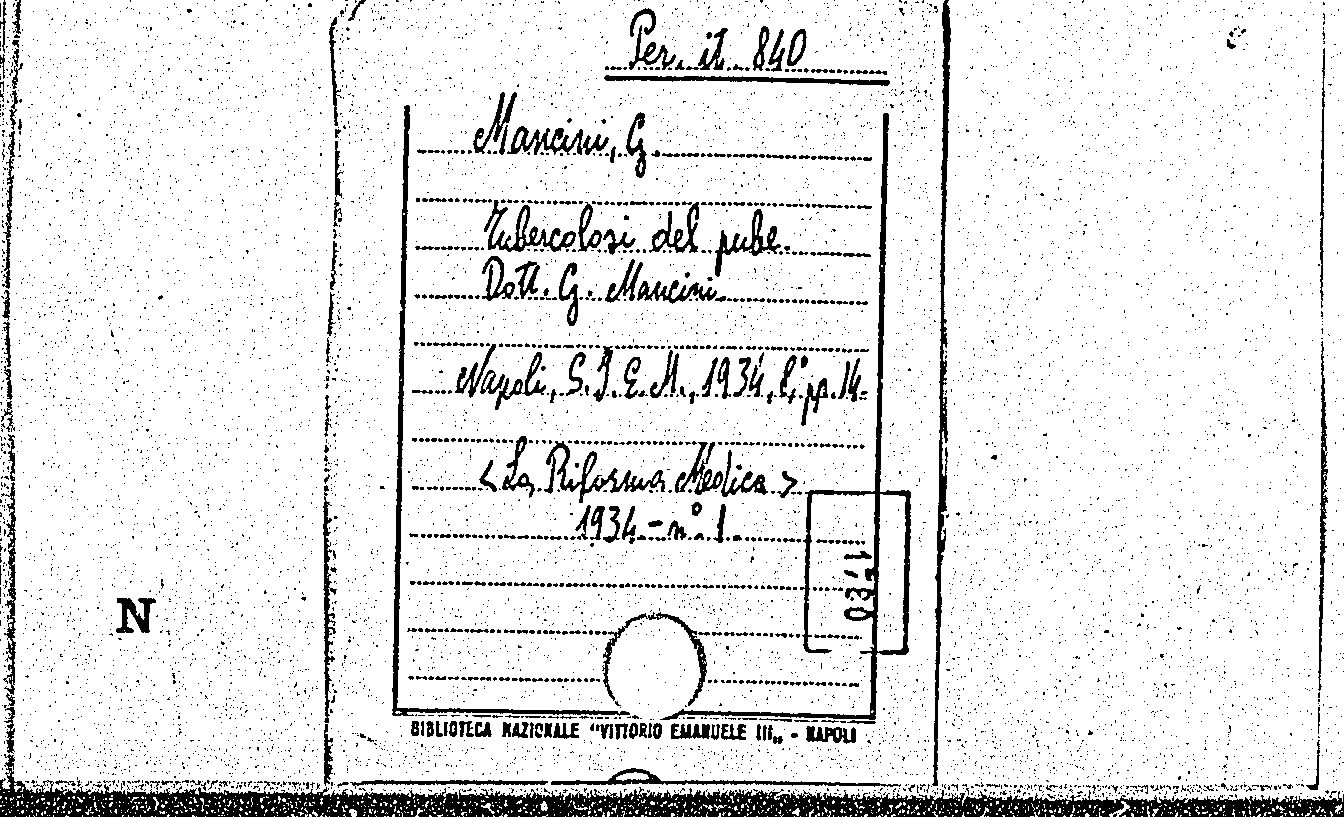 Per. it. 840
Mancini, G.
Tubercolosi del pube.
Dott. G. Mancini.
Napoli, S.I.E.M., 1934, 8°, pp. 14.
<La Riforma Medica>
1934 - n°. 1.
N
BIBLIOTECA NAZIONALE "VITTORIO EMANUELE III„ - NAPOLI